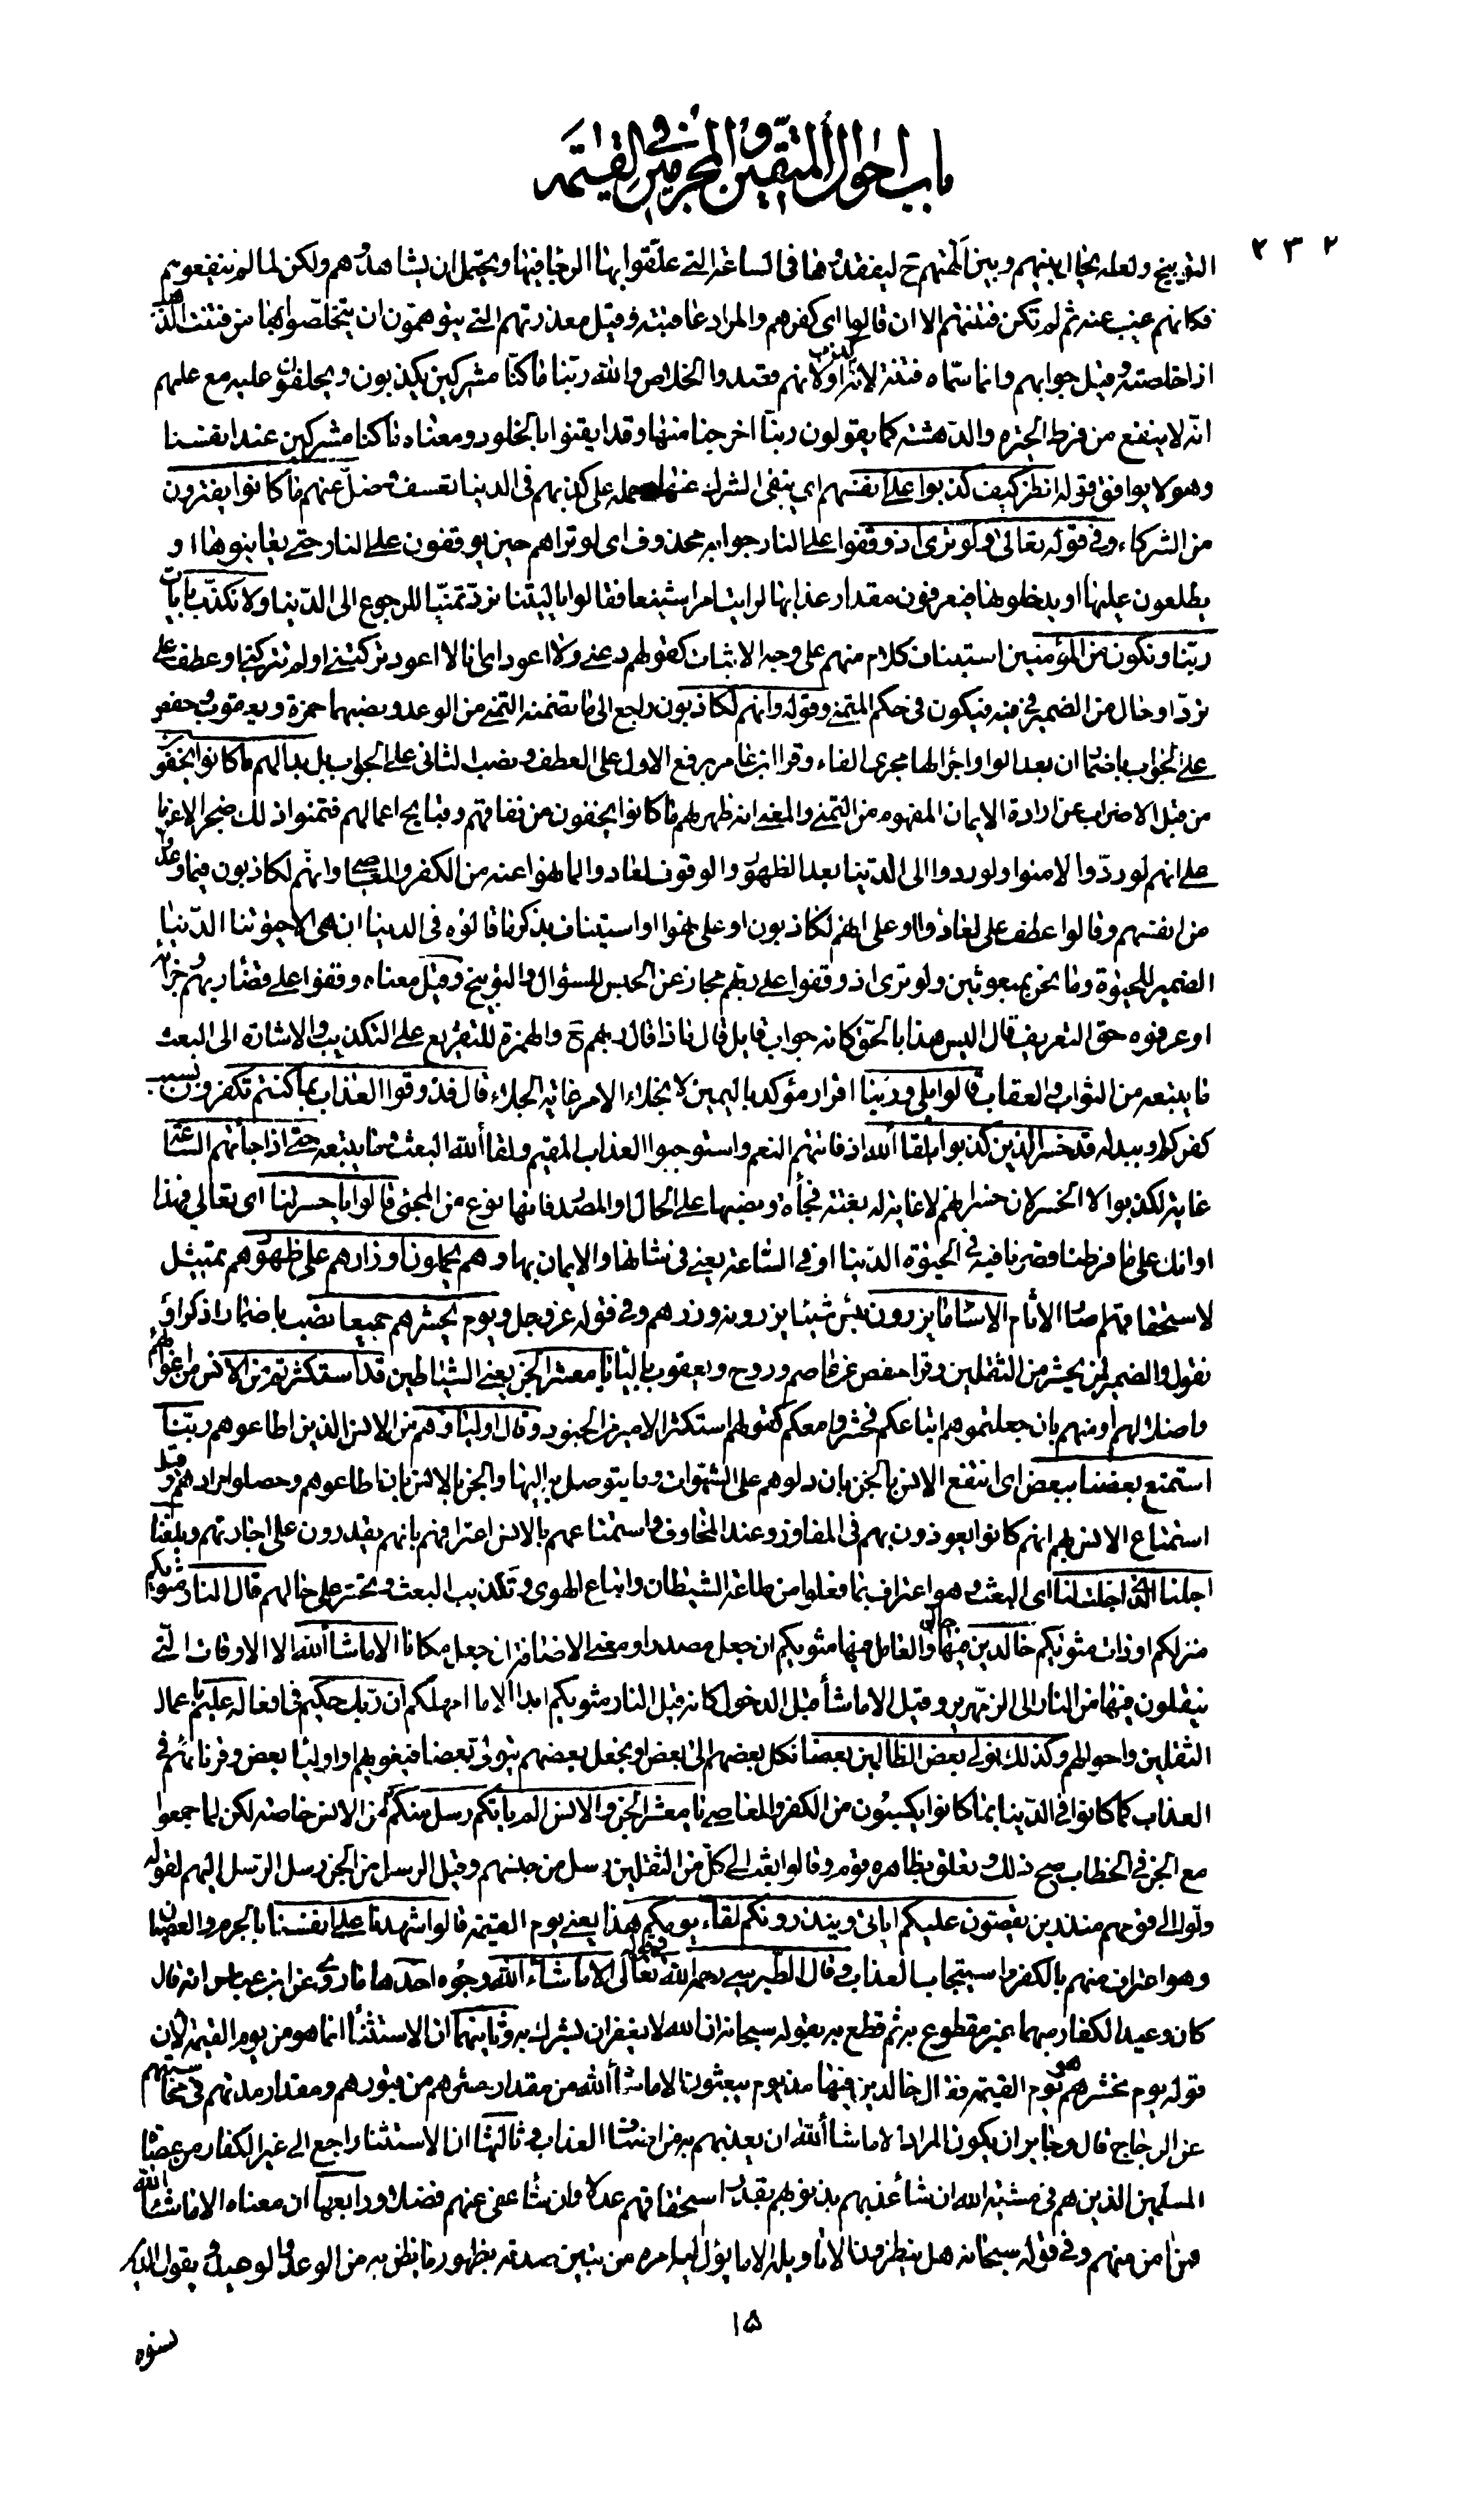 باب احوال المتقين و المجرمين في القيمة
٢٣٢
التوبيخ ولعله يحال بينهم وبين آلهتهم ح ليفقدوها في الساعة التي علقوا بها الرجا فيها ويحتمل ان يشاهدوهم ولكن لما لم ينفعوهم
فكانهم غيب عنهم ثم لم تكن فتنتهم الا ان قالوا اى كفرهم والمراد عاقبته وقيل معذرتهم التي يتوهمون ان يتخلصوا بها من فتنت الذهب
اذا خلصته وقيل جوابهم وانما سماه فتنة لانه كذب او لانهم قصدوا به الخلاص والله ربنا ما كنا مشركين يكذبون ويحلفون عليه مع علمهم
انه لا ينفع من فرط الحيرة والدهشة كما يقولون ربنا اخرجنا منها وقد ايقنوا بالخلود ومعناه ما كنا مشركين عند انفسنا
وهو لا يوافق قوله انظر كيف كذبوا على انفسهم اى بنفى الشرك عنها وحمله على كذبهم في الدنيا تعسف وضل عنهم ما كانوا يفترون
من الشركاء وفي قوله تعالى ولو ترى اذ وقفوا على النار جوابه محذوف اى لو تراهم حين يوقفون على النار حتى يعاينوها او
يطلعون عليها او يدخلونها فيعرفون مقدار عذابها لرايت امرا شنيعا فقالوا يا ليتنا نرد تمنيا للرجوع الى الدنيا ولا نكذب بايات
ربنا ونكون من المؤمنين استيناف كلام منهم على وجه الاثبات كقولهم دعني ولا اعود اى انا لا اعود تركتني او لم تتركني او عطف على
نرد او حال من الضمير فيه فيكون في حكم المتمنى وقوله وانهم لكاذبون راجع الى ما تضمنه التمني من الوعد ونصبهما حمزة ويعقوب وحفص
على الجواب باضمار ان بعد الواو اجراء لها مجرى الفاء وقرا ابن عامر برفع الاول على العطف ونصب الثانى على الجواب بل بدا لهم ما كانوا يخفون
من قبل الاضراب عن ارادة الايمان المفهوم من التمني والمعنى انه ظهر لهم ما كانوا يخفون من نفاقهم وقبايح اعمالهم فتمنوا ذلك ضجرا لا عزما
على انهم لو ردوا لامنوا ولو ردوا الى الدنيا بعد الظهور والوقوف لعادوا لما نهوا عنه من الكفر والمعاصى وانهم لكاذبون فيما وعدوا
من انفسهم وقالوا عطف على لعادوا او على انهم لكاذبون او على نهوا او استيناف بذكر ما قالوه في الدنيا ان هى الا حيوتنا الدنيا
الضمير للحيوة وما نحن بمبعوثين ولو ترى اذ وقفوا على ربهم مجاز عن الحبس للسؤال والتوبيخ وقيل معناه وقفوا على قضاء ربهم وجزائه
او عرفوه حق التعريف قال اليس هذا بالحق كانه جواب قايل قال ماذا قال ربهم ح والهمزة للتقريع على التكذيب والاشارة الى البعث
ما يتبعه من الثواب والعقاب قالوا بلى وربنا اقرار مؤكد باليمين لانجلاء الامر غاية الجلاء قال فذوقوا العذاب بما كنتم تكفرون بسبب
كفركم او ببدله قد خسر الذين كذبوا بلقاء الله اذ فاتتهم النعم واستوجبوا العذاب المقيم ولقاء الله البعث وما يتبعه حتى اذا جاءتهم الساعة
غاية لكذبوا لا لخسر لان خسرانهم لا غاية له بغتة فجأة ونصبها على الحال او المصدر فانها نوع من المجئ قالوا يا حسرتنا اى تعالي فهذا
اوانك على ما فرطنا قصرنا فيها في الحيوة الدنيا او في الساعة يعنى في شانها والايمان بها وهم يحملون اوزارهم على ظهورهم تمثيل
لاستحقاقهم اصار الاثام الا ساء ما يزرون بئس شيئا يزرونه وزرهم وفي قوله عز وجل ويوم يحشرهم جميعا نصب باضمار اذكر او
نقول والضمير لمن يحشر من الثقلين وقرا حفص عن عاصم وروح ويعقوب بالياء يا معشر الجن يعنى الشياطين قد استكثرتم من الانس من اغوائهم
واضلالهم او منهم بان جعلتموهم اتباعكم فحشروا معكم كقولهم استكثر الامير من الجنود وقال اولياؤهم من الانس الذين اطاعوهم ربنا
استمتع بعضنا ببعض اى انتفع الانس بالجن بان دلوهم على الشهوات وما يتوصل به اليها والجن بالانس بان اطاعوهم وحصلوا مرادهم وقيل
استمتاع الانس بهم انهم كانوا يعوذون بهم في المفاوز وعند المخاوف واستمتاعهم بالانس اعترافهم بانهم يقدرون على اجارتهم وبلغنا
اجلنا الذى اجلت لنا اى البعث وهو اعتراف بما فعلوا من طاعة الشيطان واتباع الهوى وتكذيب البعث وتحسر على حالهم قال النار مثويكم
منزلكم او ذات مثويكم خالدين فيها حال والعامل فيها مثويكم ان جعل مصدرا ومعنى الاضافة ان جعل مكانا الا ما شاء الله الا الاوقات التي
ينقلون فيها من النار الى الزمهرير وقيل الا ما شاء قبل الدخول كانه قيل النار مثويكم ابدا الا ما امهلكم ان ربك حكيم في افعاله عليم باعمال
الثقلين واحوالهم وكذلك نولي بعض الظالمين بعضا نكل بعضهم الى بعض او نجعل بعضهم يتولى بعضا فيغويهم او اولياء بعض وقرناءهم في
العذاب كما كانوا في الدنيا بما كانوا يكسبون من الكفر والمعاصى يا معشر الجن والانس الم ياتكم رسل منكم الرسل من الانس خاصة لكن لما جمعوا
مع الجن في الخطاب صح ذلك وتعلق بظاهره قوم وقالوا بعث الى كل من الثقلين رسل من جنسهم وقيل الرسل من الجن رسل الرسل اليهم لقوله
ولوا الى قومهم منذرين يقصون عليكم اياتي وينذرونكم لقاء يومكم هذا يعنى يوم القيمة قالوا شهدنا على انفسنا بالجرم والعصيان
وهو اعتراف منهم بالكفر واستيجاب العذاب وقال الطبرسى رحمه الله في قوله تعالى الا ما شاء الله وجوه احدها ما روى عن ابن عباس انه قال
كان وعيد الكفار مبهما غير مقطوع به ثم قطع به بقوله سبحانه ان الله لا يغفر ان يشرك به وثانيها ان الاستثناء انما هو من يوم القيمة لان
قوله يوم نحشرهم هو يوم القيمة فقال خالدين فيها مذ يوم يبعثون الا ما شاء الله من مقدار حشرهم من قبورهم ومقدار مدتهم في محاسبتهم
عن الزجاج قال وجايز ان يكون المراد الا ما شاء الله ان يعذبهم به من اصناف العذاب وثالثها ان الاستثناء راجع الى غير الكفار من عصاة
المسلمين الذين هم في مشية الله ان شاء عذبهم بذنوبهم بقدر استحقاقهم عدلا وان شاء عفى عنهم فضلا ورابعها ان معناه الا ما شاء الله
ممن امن منهم وفي قوله سبحانه هل ينظرون الا تاويله الا ما يؤل اليه امره من تبين صدقه بظهور ما نطق به من الوعد والوعيد يقول الذين
١٥
نسوه